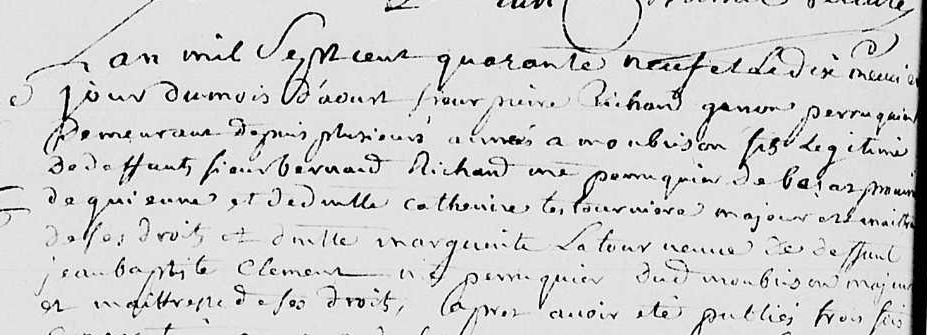 Lan mil Sept cent quarante neuf et Le dix
jour du mois d'aoust sieur pierre Richard garson perruquier
Demeurant depuis plusieurs années a monbrison fils Legitime
De deffunts sieur bernard Richard me perruquier de
de guienne et de dmlle catherine majeur et maitre
de ses droits et dmlle marguerite Latour veuve de deffunt
jean baptiste Clement me perruquier dud monbrison majeure
et maittresse de ses droits, apres avoir eté publiés trois fois